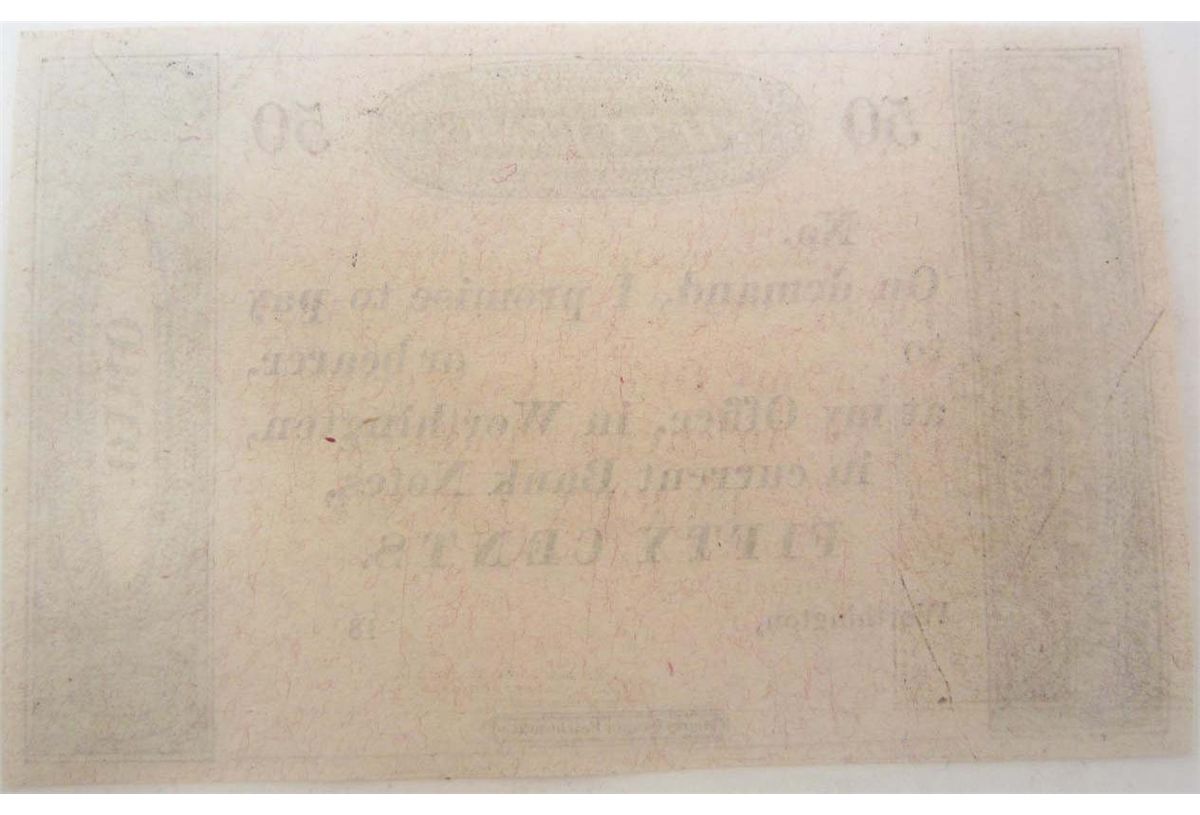 50 50
No.
On demand, I promise to pay
to or bearer,
at my Office, in Worthington,
in current Bank Notes,
FIFTY CENTS.
Worthington, 18
OHIO